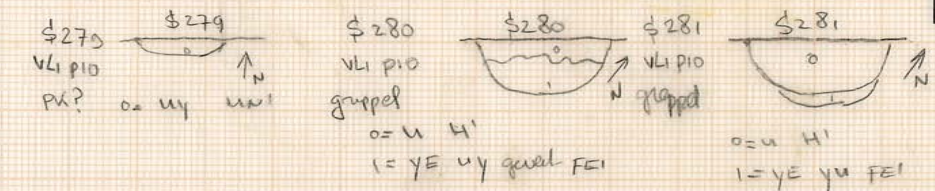 $279
VL1 p10
PK?
$279
0
N
0= uy UN1
$280
VL1 p10
greppel
$280
0
1
N
0= u H1
1= YE uy gevl FE1
$281
VL1 p10
greppel
$281
0
1
N
0=u H1
1=YE yu FE1